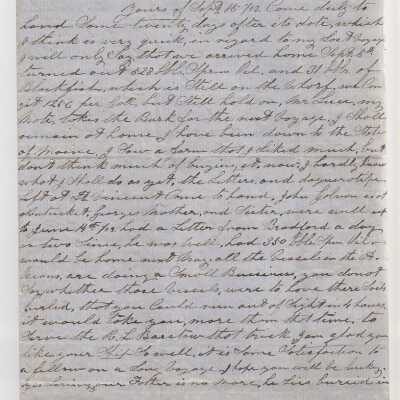 Yours of Sept 15th/52 Come duly to
hand Some twenty days after its date, which
I think is very quick, in regard to my Last Voyage
I will only Say that we arrived home Sept 5th
turned out 528 bbls Sperm Oil, and 31 bbls of
Blackfish, which is Still on the Wharf, we can
get 126 c per Gall. but Still hold on, Mr Luce, my
Mate, takes the Bark for the next Voyage, I Shall
remain at home, I have been down to the State
of Maine, I Saw a farm that I liked much, but
don't think much of buying, it, now, I hardly know
what I Shall do as yet, the Letters, and daguerotypes
Left at St Vincent Come to hand, John is not
Mother, and Sister, were well up
to June 14th had a Letter from Bradford a day
or two Since, he was well, had 350 bbls
would be home next May, all the Vessels in the
are doing a Small Business, you do not
Say whether those Vessels, were to
that you Could run out of Sight in 4 hours,
it would take you, more than that time, to
Serve the Barstow that trick I am glad you
like your Ship So well, it is Some Satisfaction to
a fellow on a Long Voyage, I hope you will be lucky
your Father is no more, he lies buried in